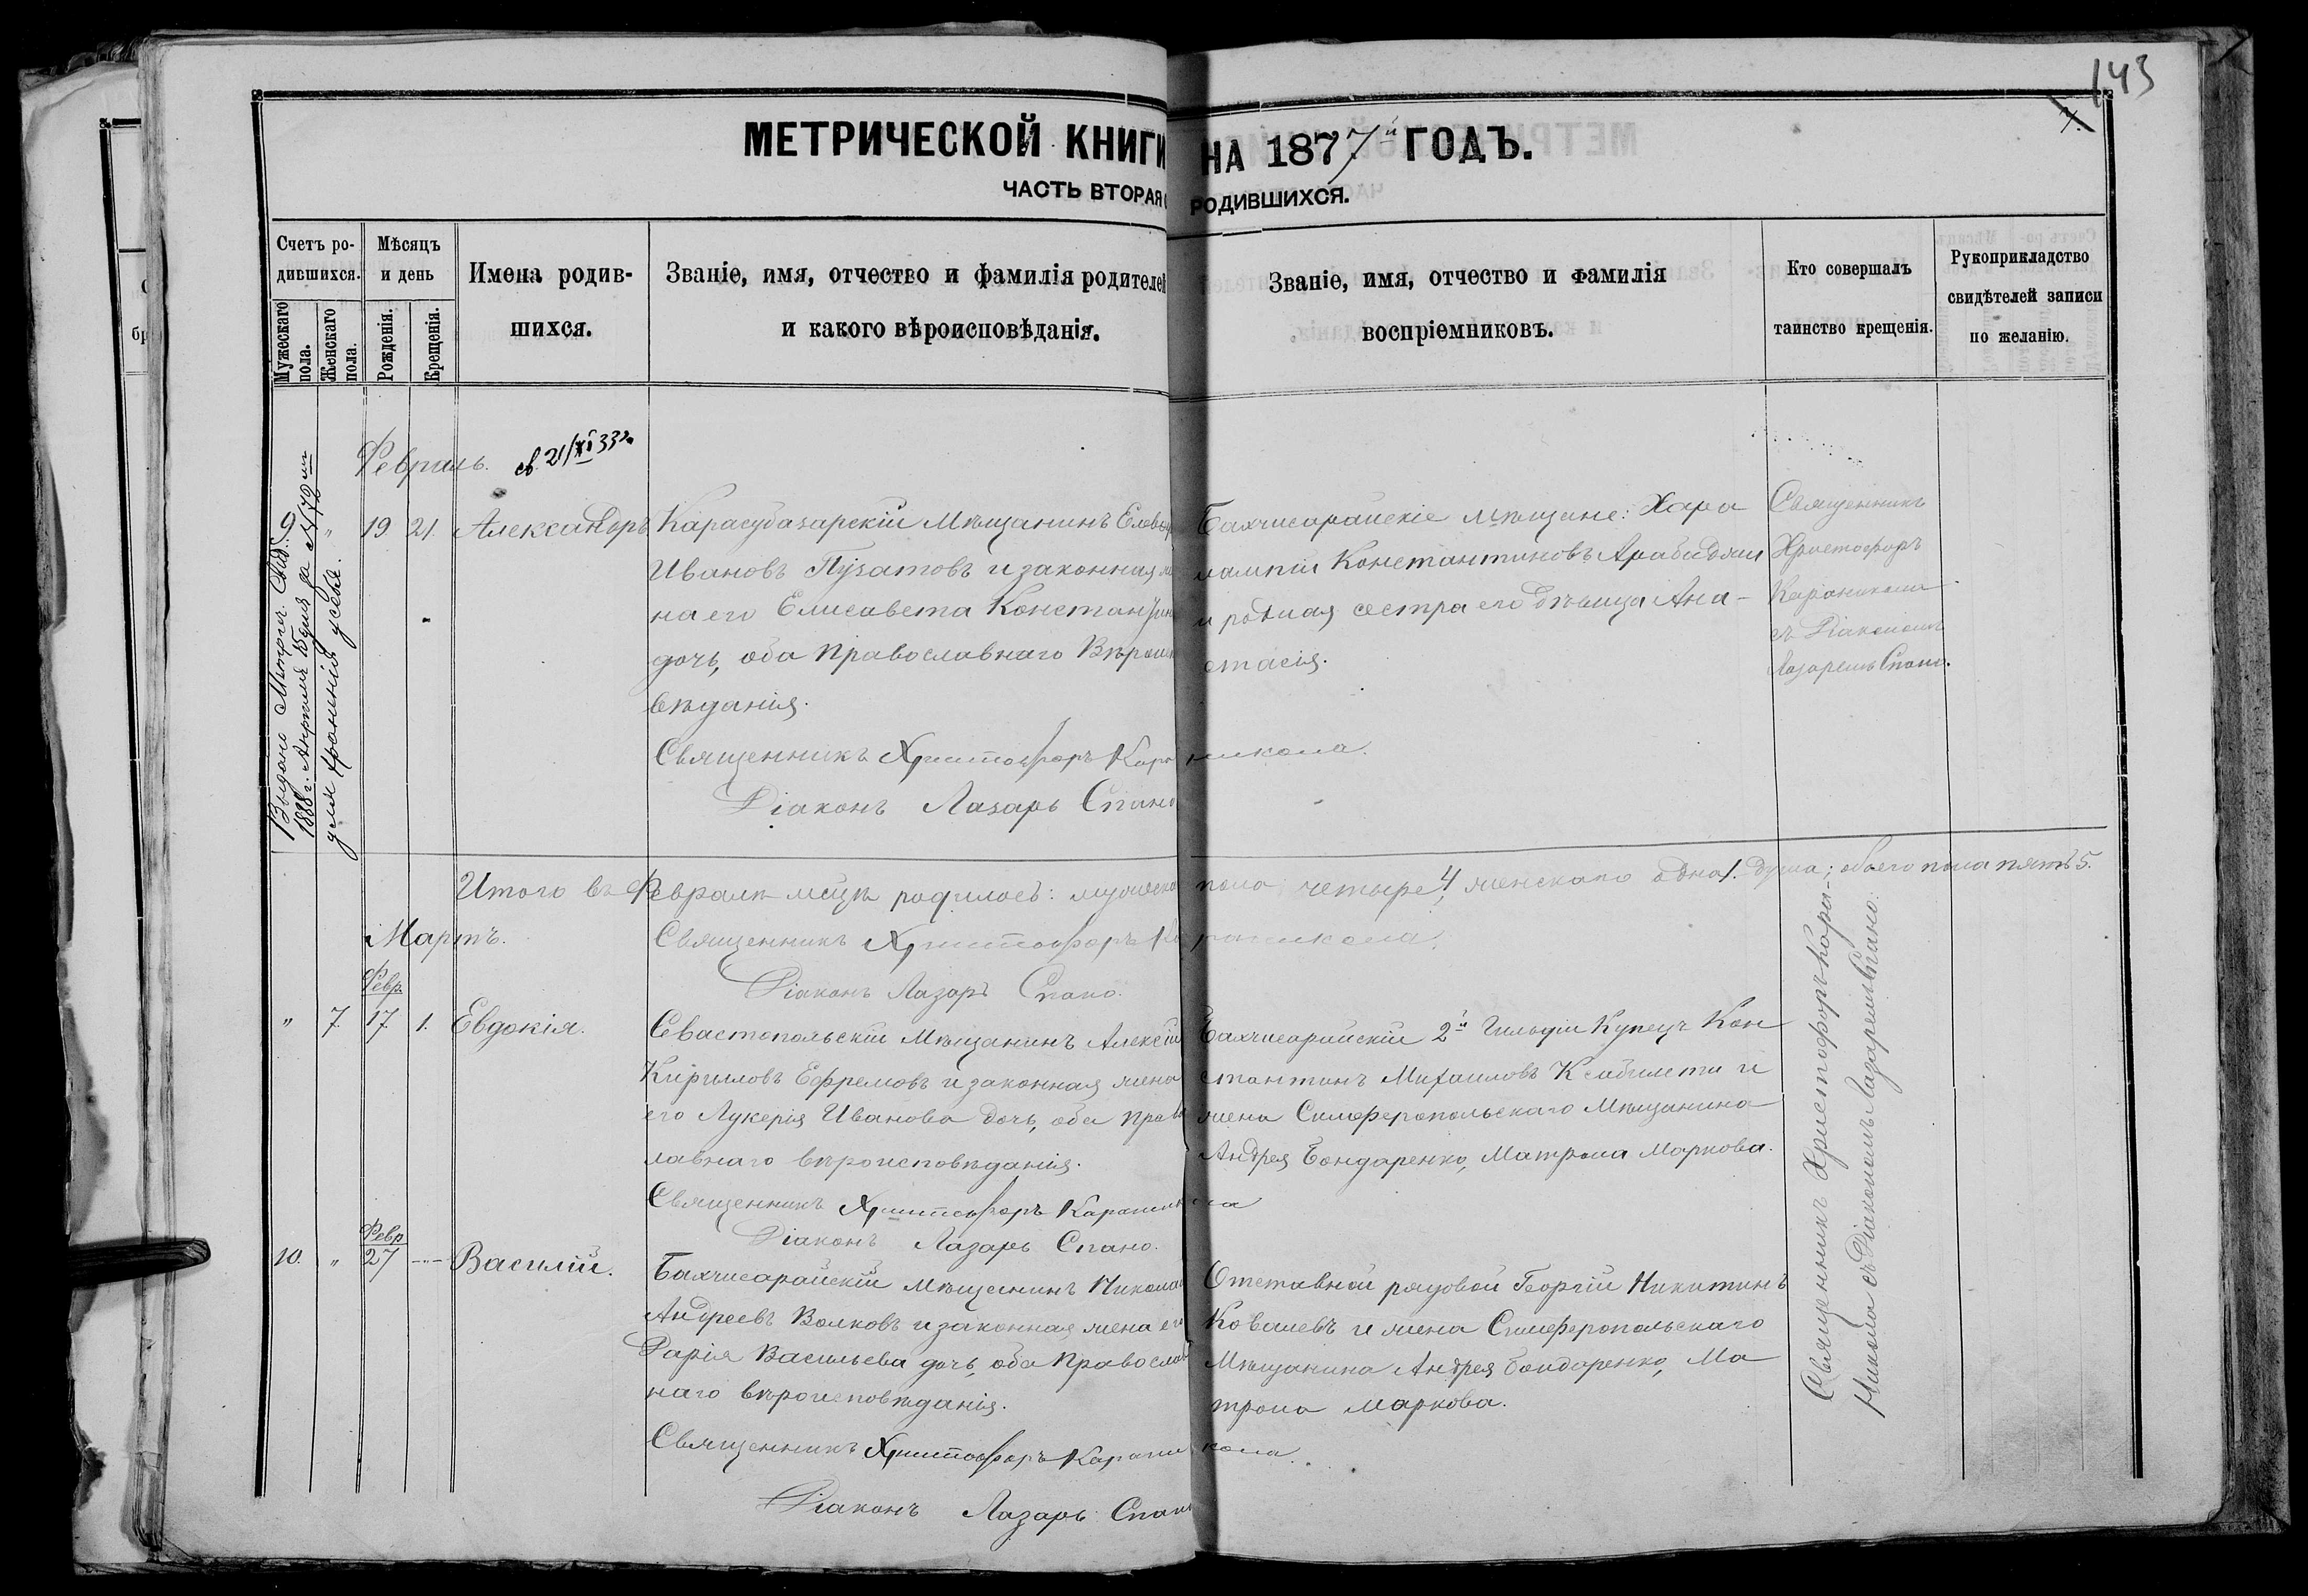 143
7.
МЕТРИЧЕСКОЙ КНИГИ НА 1877й ГОДЪ.
ЧАСТЬ ВТОРАЯ РОДИВШИХСЯ.
Счетъ родившихся.
Мужескаго пола.
Женскаго пола.
Мѣсяцъ и день
Рожденія.
Крещенія.
Имена родив-
шихся.
Званіе, имя, отчество и фамилія родителей
и какого вѣроисповѣданія.
Званіе, имя, отчество и фамилія
воспріемниковъ.
Кто совершалъ
таинство крещенія.
Рукоприкладство
свидѣтелей записи
по желанію.
Февраль. св. 21/XI 33г.
Выдано Метрич. Свид.
1888 г. Апрѣля 15 дня за № 72
9 " 19 21. Александръ
Карасубазарскій Мѣщанинъ
Ивановъ Пузатовъ и законная
на его Елисавета Константин
дочь, оба Православнаго Вѣроис
вѣданія.
Священникъ Христофоръ Караникола.
Діаконъ Лазарь Спано
Бахчисарайскіе мѣщане: Хара
лампій Константиновъ
и родная сестра его дѣвица Ана-
стасія.
Священникъ
Христофоръ
Караникола
съ Діакономъ
Лазаремъ Спано.
Итого въ Февралѣ мсцѣ родилось: мужеска пола четыре 4, женскаго одна 1. душа; обоего пола пять 5.
Мартъ.
Священникъ Христофоръ Караникола.
Діаконъ Лазарь Спано.
Февр.
" 7. 17. 1. Евдокія.
Севастопольскій Мѣщанинъ Алексій
Кириловъ Ефремовъ и законная жена
его Лукерія Иванова дочь, оба право
лавнаго вѣроисповѣданія.
Священникъ Христофоръ Караникола
Діаконъ Лазарь Спано.
Бахчисарайскій 2й Гильдіи Купецъ Кон
стантинъ Михаиловъ и
жена Симферопольскаго Мѣщанина
Андрея Бондаренко, Матрона Маркова.
Февр
10. " 27 --- Василій.
Бахчисарайскій мѣщанинъ Никола
Андреевъ Волковъ и законная жена его
Дарія Васильева дочь, оба Православ
наго вѣроисповѣданія.
Священникъ Христофоръ Караникола.
Діаконъ Лазарь Спано
Отставной рядовой Георгій Никитинъ
Ковалевъ и жена Симферопольскаго
Мѣщанина Андрея Бондаренко, Ма
трона Маркова.
Священникъ Христофоръ Кара-
никола съ Діакономъ Лазаремъ Спано.